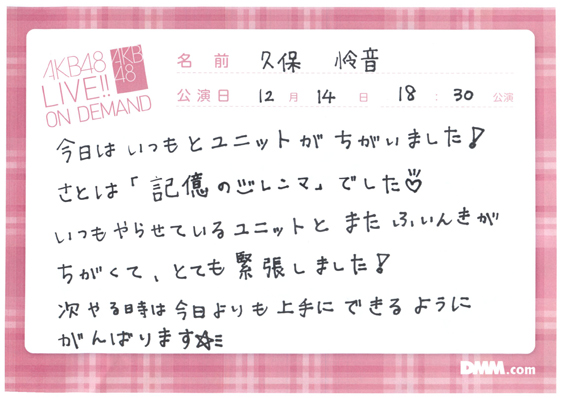 AKB48
LIVE!!
ON DEMAND
AKB
48
名前 久保 怜音
公演日 12月14日 18:30公演
今日はいつもとユニットがちがいました!
さとは「記憶のジレンマ」でした♡
いつもやらせているユニットとまたふいんきが
ちがくて、とても緊張しました!
次やる時は今日よりも上手にできるように
がんばります☆ミ
DMM.com